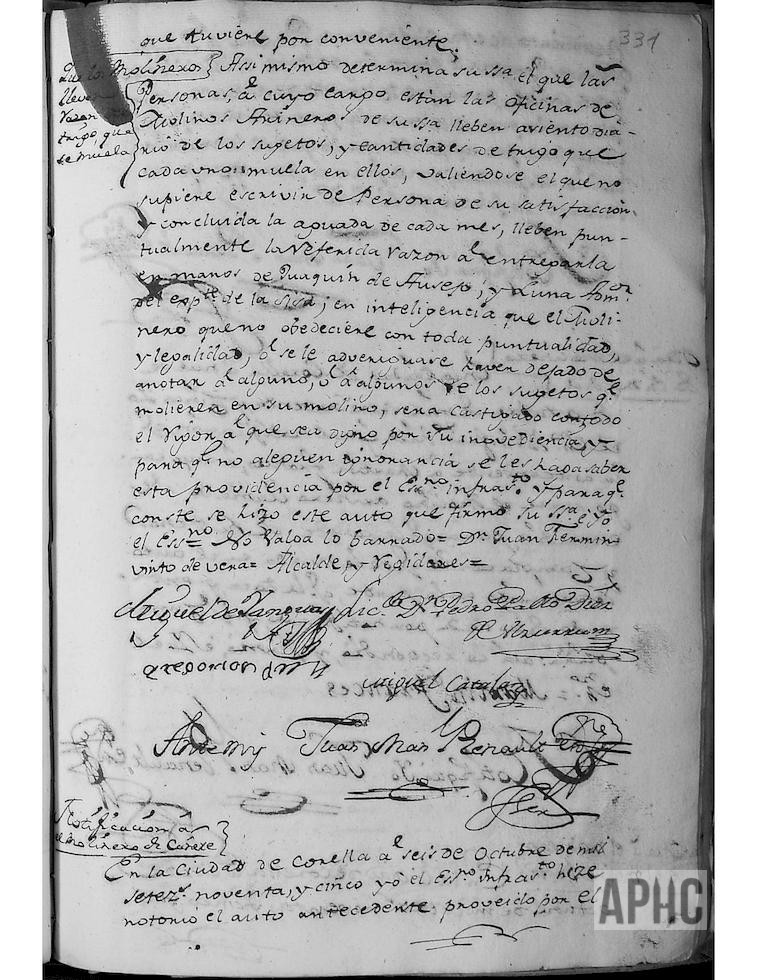 331
que tuviere por conveniente.
Que los Molineros
lleven
razon
trigo, que
se muela
Assi mismo determina su ssa. el que las
Personas, á cuyo cargo están las oficinas de
Molinos Arineros de su ssa lleben asiento dia-
rio de los sugetos, y cantidades de trigo que
cada uno muela en ellos, valiendose el que no
supiere escrivir de Persona de su satisfaccion,
y concluida la aguada de cada mes, lleben pun-
tualmente la referida razon á entregarla
en manos de Juaquin de Ausejo, y Luna Adm.or
del expte. de la sisa; en inteligencia que el Moli-
nero que no obedeciere con toda puntualidad,
y legalidad, ó se le adveriguare haver dejado de
anotar á alguno, ó á algunos de los sugetos q.e
molieren en su molino, sera castigado con todo
el rigor á que sea digno por su inovediencia, y
para q.e no aleguen ignorancia se les haga saber
esta providencia por el Ess.no infras.to y para q.e
conste se hizo este auto que firmó su ssa. é yo
el Ess.no No valga lo barrado= Dn. Juan Fermin
vinto de vera= Alcalde y Regidores=
Miguel de
Lic.do Dn. Pedro Pablo Diez
de Ulzurrun
Miguel Catalan
Ante my Juan Man.l Renault
Notificacion á
el Molinero de Cañete
En la Ciudad de Corella á seis de Octubre de mil
setez.s noventa, y cinco yó el Ess.no infras.to hize
notorio el auto antecedente proveido por el
APHC